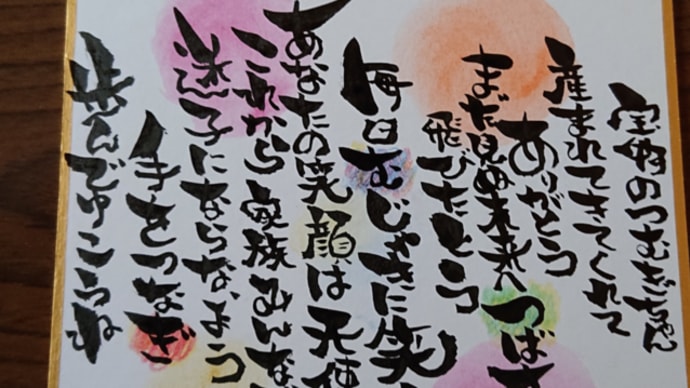 宝物のつむぎちゃん
産まれてきてくれて
ありがとう
まだ見ぬ未来へ つば
飛びたとう
毎日むじゃきに笑
あなたの笑顔は天使
これから家族みんな
迷子にならないよう
手をつなぎ
歩んでゆこうね